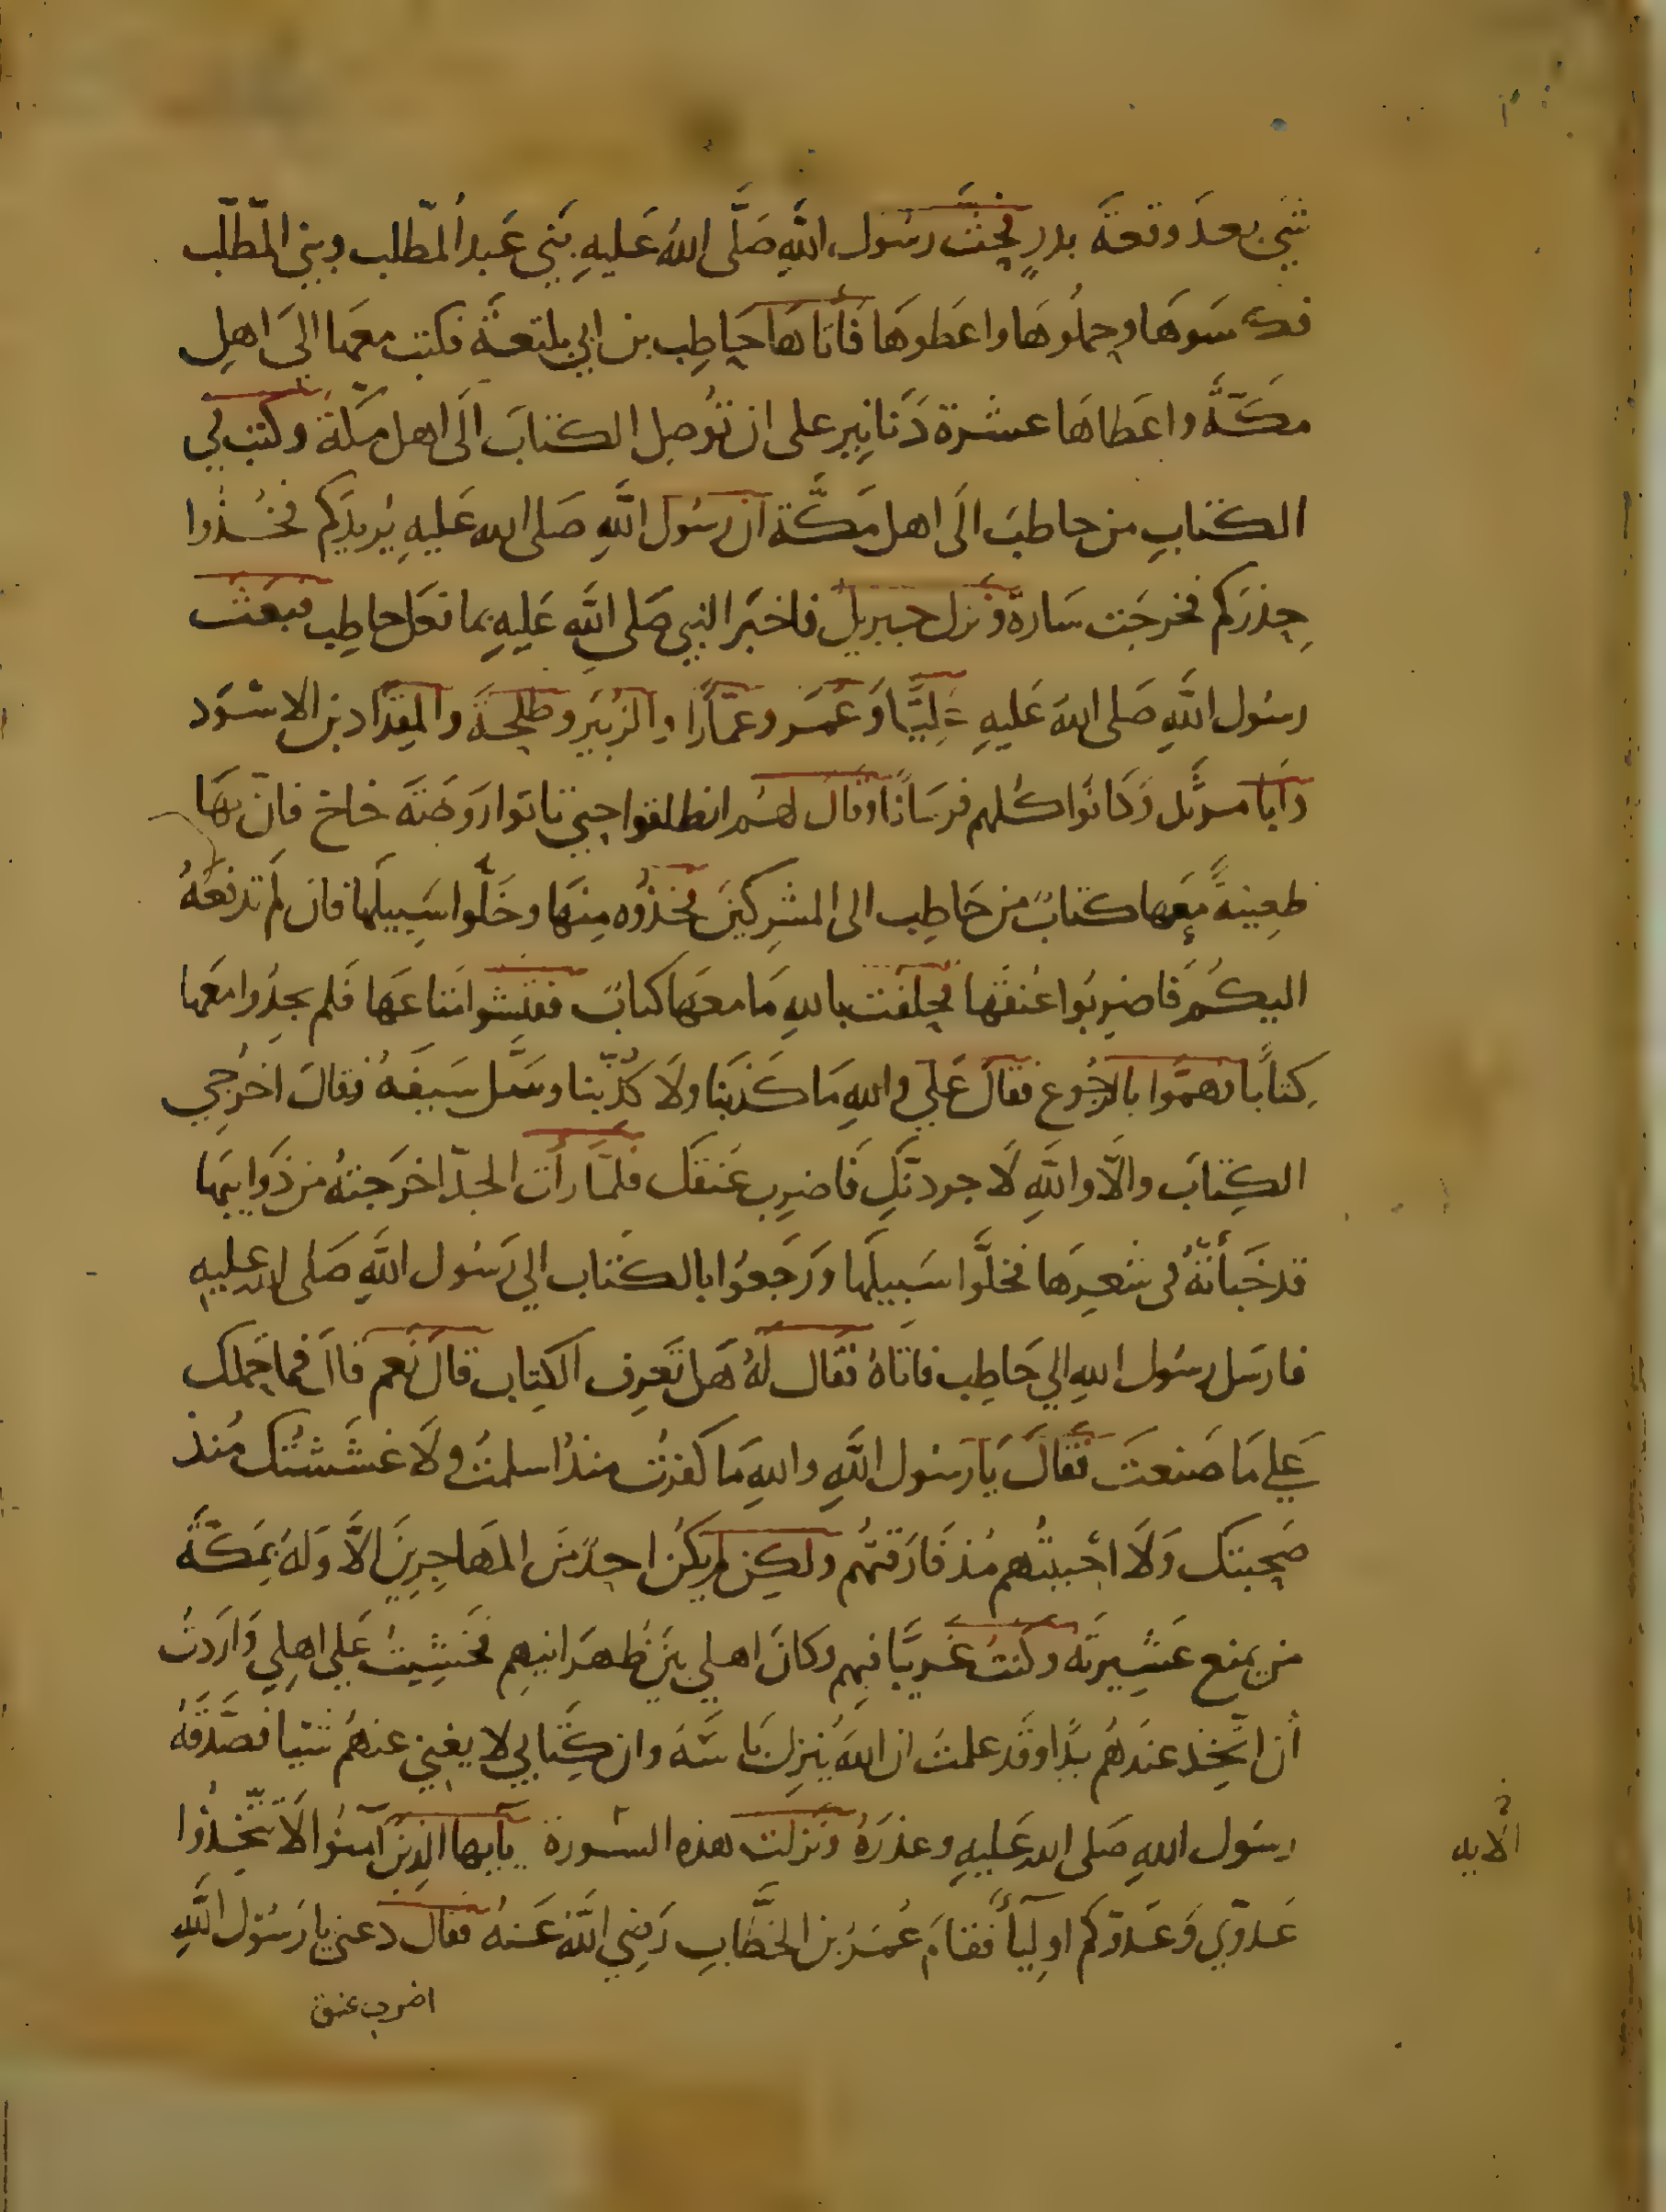 شي بعد وقعة بدرٍ فحثّ رسول الله صَلَّى اللهُ عَليهِ بَنِي عَبد المطّلب وبني المطّلب
فكسَوهَا وحملُوهَا واعطوهَا فأتاهَا حَاطِب بن ابي بلتعة فكتب معها الىَ اهلِ
مكّة واعطاهَا عشرة دَنانِير على ان تُوصِل الكتابَ الَى اهل مكّة وكتب في
الكتابِ من حاطب الَى اهل مَكَّة ان رسُول اللهِ صَلى الله عَليهِ يُريدكم فخُذوا
حِذركم فخرجَت سَارة ونزل جبريل فاخبَر النبي صَلى اللَّه عَليهِ بما فعَل حاطِب فبعَث
رسُول اللهِ صَلى اللهُ عَليهِ عَليًّا وَعُمَر وعمّارًا والزبَير وطلحَة والمِقدَاد بن الاسوَد
وَأبا مرثد وَكانوُا كلهم فرسَانًا وقال لهُم انطلقوا حتى تاتوا روضَة خاخ فانّ بهَا
ظعِينةً معَها كتابٌ من حَاطِب الى المشرِكينَ فخذُوه مِنهَا وخَلّوا سَبِيلَها فان لم تدفعهُ
اليكُم فَاضرِبُوا عُنقَها فحلفَت باللهِ مَا معهَا كتابٌ ففتشوا متَاعهَا فلم يجدُوا معَها
كِتاباً فهمّوا بالرجُوع فقال عَلي واللهِ مَا كذَبَنا ولَا كذّبنا وسَلّ سَيفَهُ فقالَ اخرجي
الكِتابَ والّا واللهِ لَاجردنّكِ فَاضرِب عنقك فلمّا رأت الجدّ اخرَجتهُ من ذَوايبهَا
قد خَبأتهُ في شعرِهَا فخلَّوا سَبِيلَها وَرَجعوُا بالكتاب الي رَسُول اللهِ صَلى الله عليهِ
فارسَل رسُول اللهِ الي حَاطِب فاتَاهُ فقال لهُ هَل تَعرِف الكِتاب قال نعم قاال فما حَملك
عَلي مَا صَنعتَ فقالَ يَا رسُول اللَّهِ واللهِ مَا كفرتُ منذُ اسلمتُ ولَا غشَشتُك مُنذ
صَحبتك وَلَا احببتُهم مُنذ فَارَقتهُم ولكِن لم يكُن احدٌ منَ المهَاجِرِينَ الَّا وَلهُ بِمَكّة
من يمنع عَشِيرتَه وكنتُ غرِيبًا فيهم وكانَ اهلي بينَ ظهرَانيهِم فخَشِيتُ عَلي اهلِي وَارَدتُ
أن اتّخِذ عندهُم يدًا وقد علمتُ ان اللهَ يُنزِل بَاسَهُ وان كِتابي لا يغني عنهُم شَيًا فصَدّقهُ
رسُول اللهِ صَلى الله عَليهِ وعذرَهُ ونزلت هذه السُورة يأيها الذِينَ آمنُوا لَا تتّخِذُوا
عَدوّي وَعَدوّكم اولِيآء فقامَ عُمَر بن الخطَّابِ رَضِي اللهُ عَنهُ فقال دعني يا رَسُول اللَّهِ
اضرب عنق
الايه